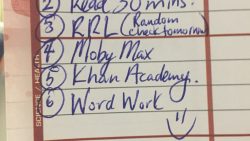 2) Read 30 mins.
3 RRL (Random
check tomorrow)
4 Moby Max
5 Khan Academy.
6 Word Work
SCIENCE / HEALTH